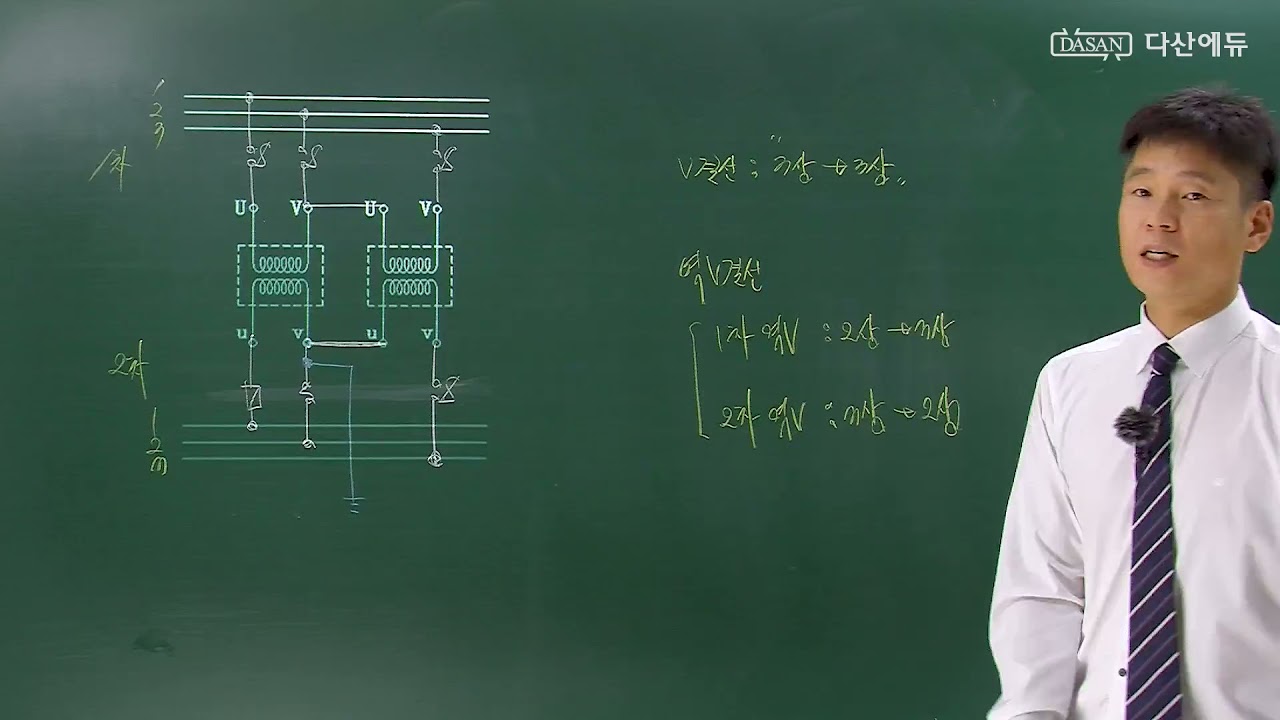 DASAN 다산에듀
1
2
3
1차
V결선 : 3상 → 3상
U V U V
역V결선
1차 역V : 2상 → 3상
u v u v
2차
2차 역V : 3상 → 2상
1
2
3